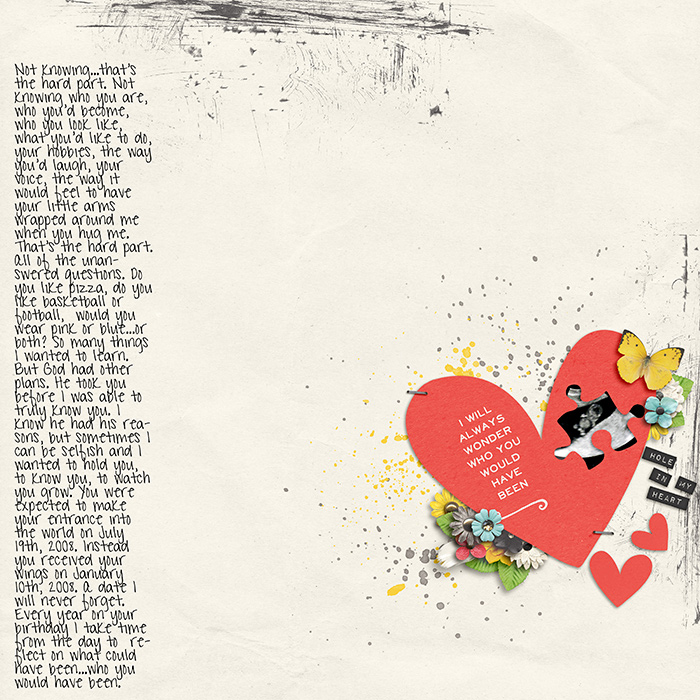 Not knowing...that's
the hard part. Not
knowing who you are,
who you'd become,
who you look like,
what you'd like to do,
your hobbies, the way
you'd laugh, your
voice, the way it
would feel to have
your little arms
wrapped around me
when you hug me.
That's the hard part.
All of the unan-
swered questions. Do
you like pizza, do you
like basketball or
football, would you
wear pink or blue...or
both? So many things
I wanted to learn.
But God had other
plans. He took you
before I was able to
truly know you. I
know he had his rea-
sons, but sometimes I
can be selfish and I
wanted to hold you,
to know you, to watch
you grow. You were
expected to make
your entrance into
the world on July
19th, 2008. Instead
you received your
wings on January
10th, 2008. A date I
will never forget.
Every year on your
birthday I take time
from the day to re-
flect on what could
have been...who you
would have been.
I WILL
ALWAYS
WONDER
WHO YOU
WOULD
HAVE
BEEN
HOLE
IN MY
HEART